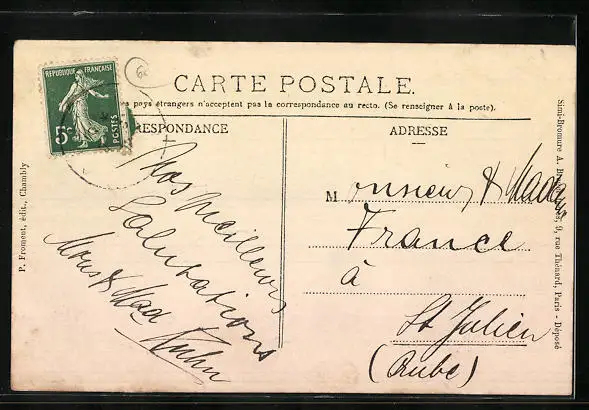 RÉPUBLIQUE FRANÇAISE
5c
POSTES
CARTE POSTALE.
pays étrangers n'acceptent pas la correspondance au recto. (Se renseigner à la poste).
RESPONDANCE
ADRESSE
Nos meilleures
Salutations
Mons & Mad
Kuhn
Monsieur & Madame
France
à
St Julien
(Aube)
P. Froment, édit., Chambly
Simi-Bromure A. 9, rue Thénard, Paris - Déposé